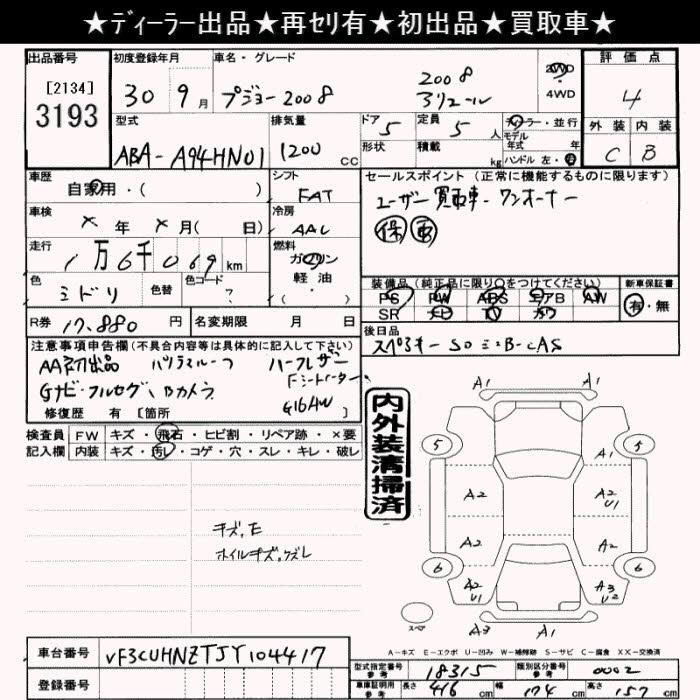 ★ディーラー出品★再セリ有★初出品★買取車★
出品番号
[2134]
3193
初度登録年月
30 9月
車名・グレード
プジョー2008
2008
アリュール
2WD
4WD
評価点
4
外装 内装
C B
型式
ABA-A94HN01
排気量
1200 cc
ドア 5
形状
定員 5 人
積載 kg
ディーラー・並行
モデル
年式 年
ハンドル 左・右
車歴
自家用・( )
シフト
FAT
車検
× 年 × 月( 日)
冷房
AAC
走行
1万6千069 km
燃料
ガソリン
軽油
・
色
ミドリ
色替
色コード
?
R券 17.880 円
名変期限 月 日
セールスポイント(正常に機能するものに限ります)
ユーザー買取車・ワンオーナー
保 画
装備品(純正品に限り○をつけてください)
PS PW ABS エアB AW
SR ナビ TV カワ
新車保証書
有・無
後日品
スペアキー・SDミニB・CAS
注意事項申告欄(不具合内容等は具体的に記入して下さい)
AA初出品 パノラマルーフ ハーフレザー
Gナビ・フルセグ、Bカメラ Fシートヒーター
G16AW
修復歴 有 [箇所 ]
検査員
記入欄
FW キズ・飛石・ヒビ割・リペア跡・×要
内装 キズ・汚れ・コゲ・穴・スレ・キレ・破レ
内外装清掃済
キズ,E
ホイルキズ,クズレ
A1
A1
5
5
A2
A2
U1
A2
A1
A2
A2
6
6
A2
U1
A3
U2
スペア
A3
A1
A-キズ E-エクボ U-凹み W-補修跡 S-サビ C-腐食 XX-交換済
車台番号 VF3CUHNZTJY104417
登録番号
型式指定番号
参考
18315
類別区分番号
参考
0002
車庫証明用
参考
長さ 416 cm 幅 174 cm 高さ 157 cm